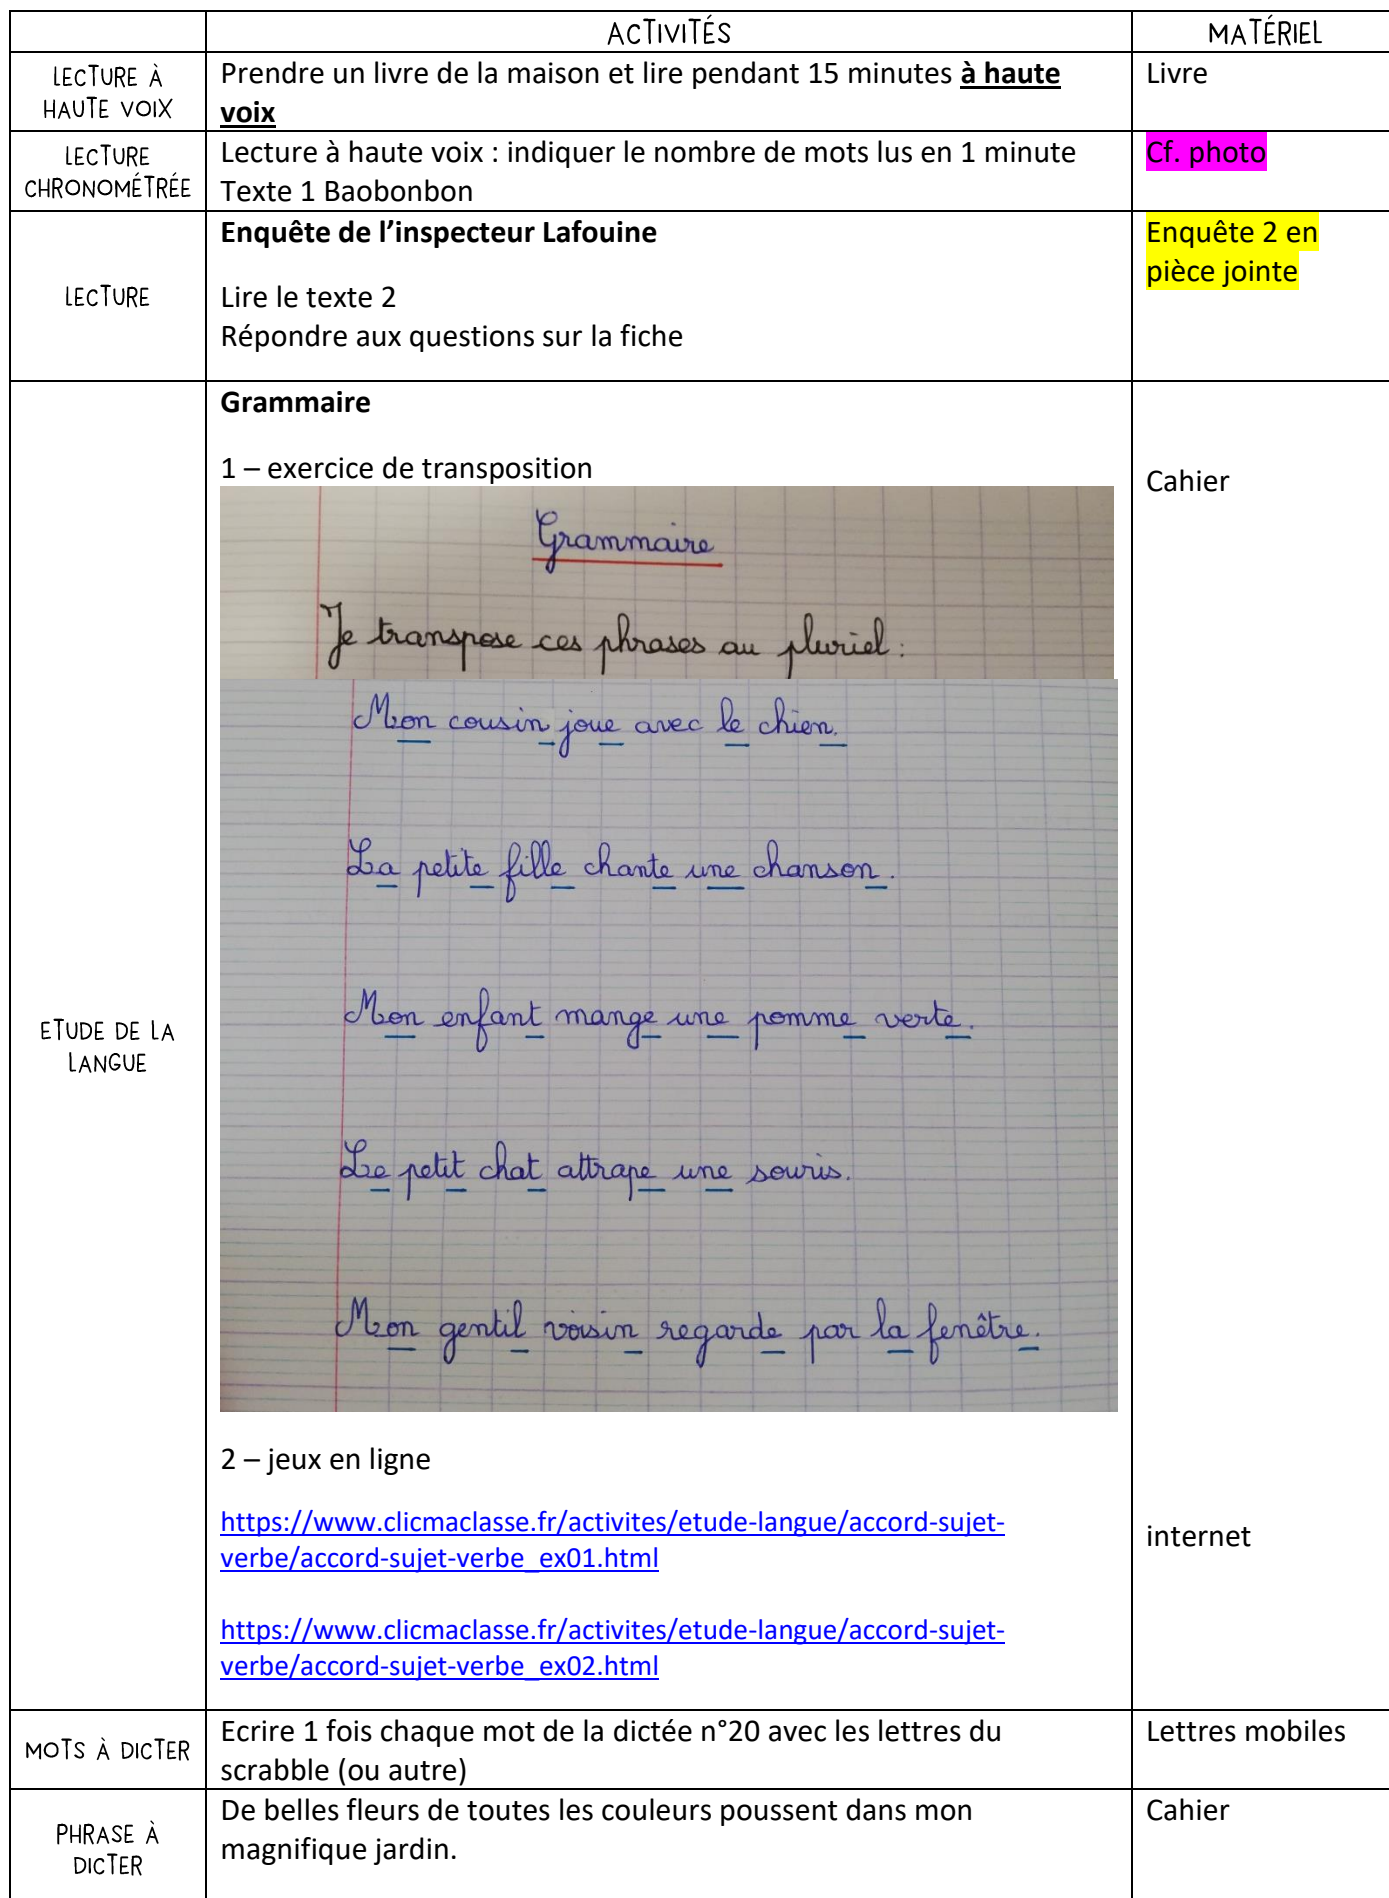 ACTIVITÉS
MATÉRIEL
LECTURE À
HAUTE VOIX
Prendre un livre de la maison et lire pendant 15 minutes à haute
voix
Livre
LECTURE
CHRONOMÉTRÉE
Lecture à haute voix : indiquer le nombre de mots lus en 1 minute
Texte 1 Baobonbon
Cf. photo
LECTURE
Enquête de l’inspecteur Lafouine
Lire le texte 2
Répondre aux questions sur la fiche
Enquête 2 en
pièce jointe
ETUDE DE LA
LANGUE
Grammaire
1 – exercice de transposition
Cahier
Grammaire
Je transpose ces phrases au pluriel :
Mon cousin joue avec le chien.
La petite fille chante une chanson.
Mon enfant mange une pomme verte.
Le petit chat attrape une souris.
Mon gentil voisin regarde par la fenêtre.
2 – jeux en ligne
https://www.clicmaclasse.fr/activites/etude-langue/accord-sujet-
verbe/accord-sujet-verbe_ex01.html
internet
https://www.clicmaclasse.fr/activites/etude-langue/accord-sujet-
verbe/accord-sujet-verbe_ex02.html
MOTS À DICTER
Ecrire 1 fois chaque mot de la dictée n°20 avec les lettres du
scrabble (ou autre)
Lettres mobiles
PHRASE À
DICTER
De belles fleurs de toutes les couleurs poussent dans mon
magnifique jardin.
Cahier